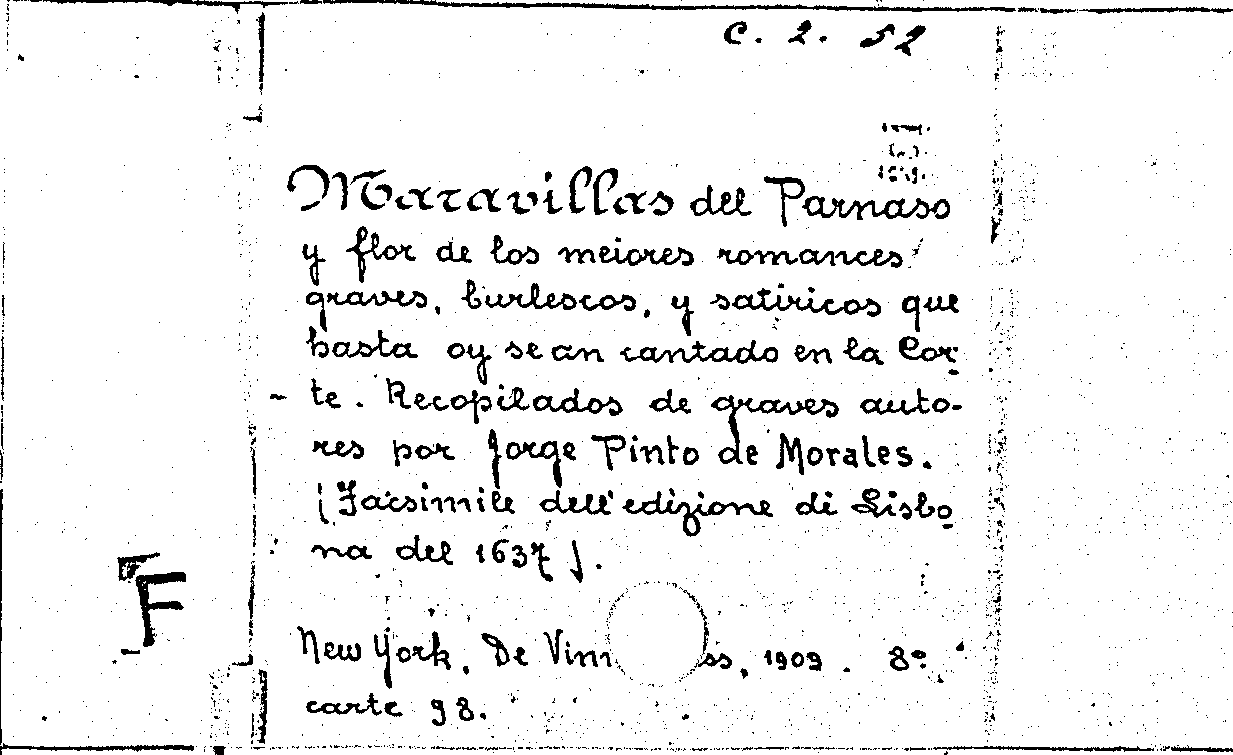 C. 2. 52
Maravillas del Parnaso
y flor de los meiores romances
graves, burlescos, y satiricos que
hasta oy se an cantado en la Cor-
te. Recopilados de graves auto-
res por Jorge Pinto de Morales.
(Facsimile dell'edizione di Lisbo-
na del 1637).
F
New York, De Vinn ss, 1909. 8º
carte 98.